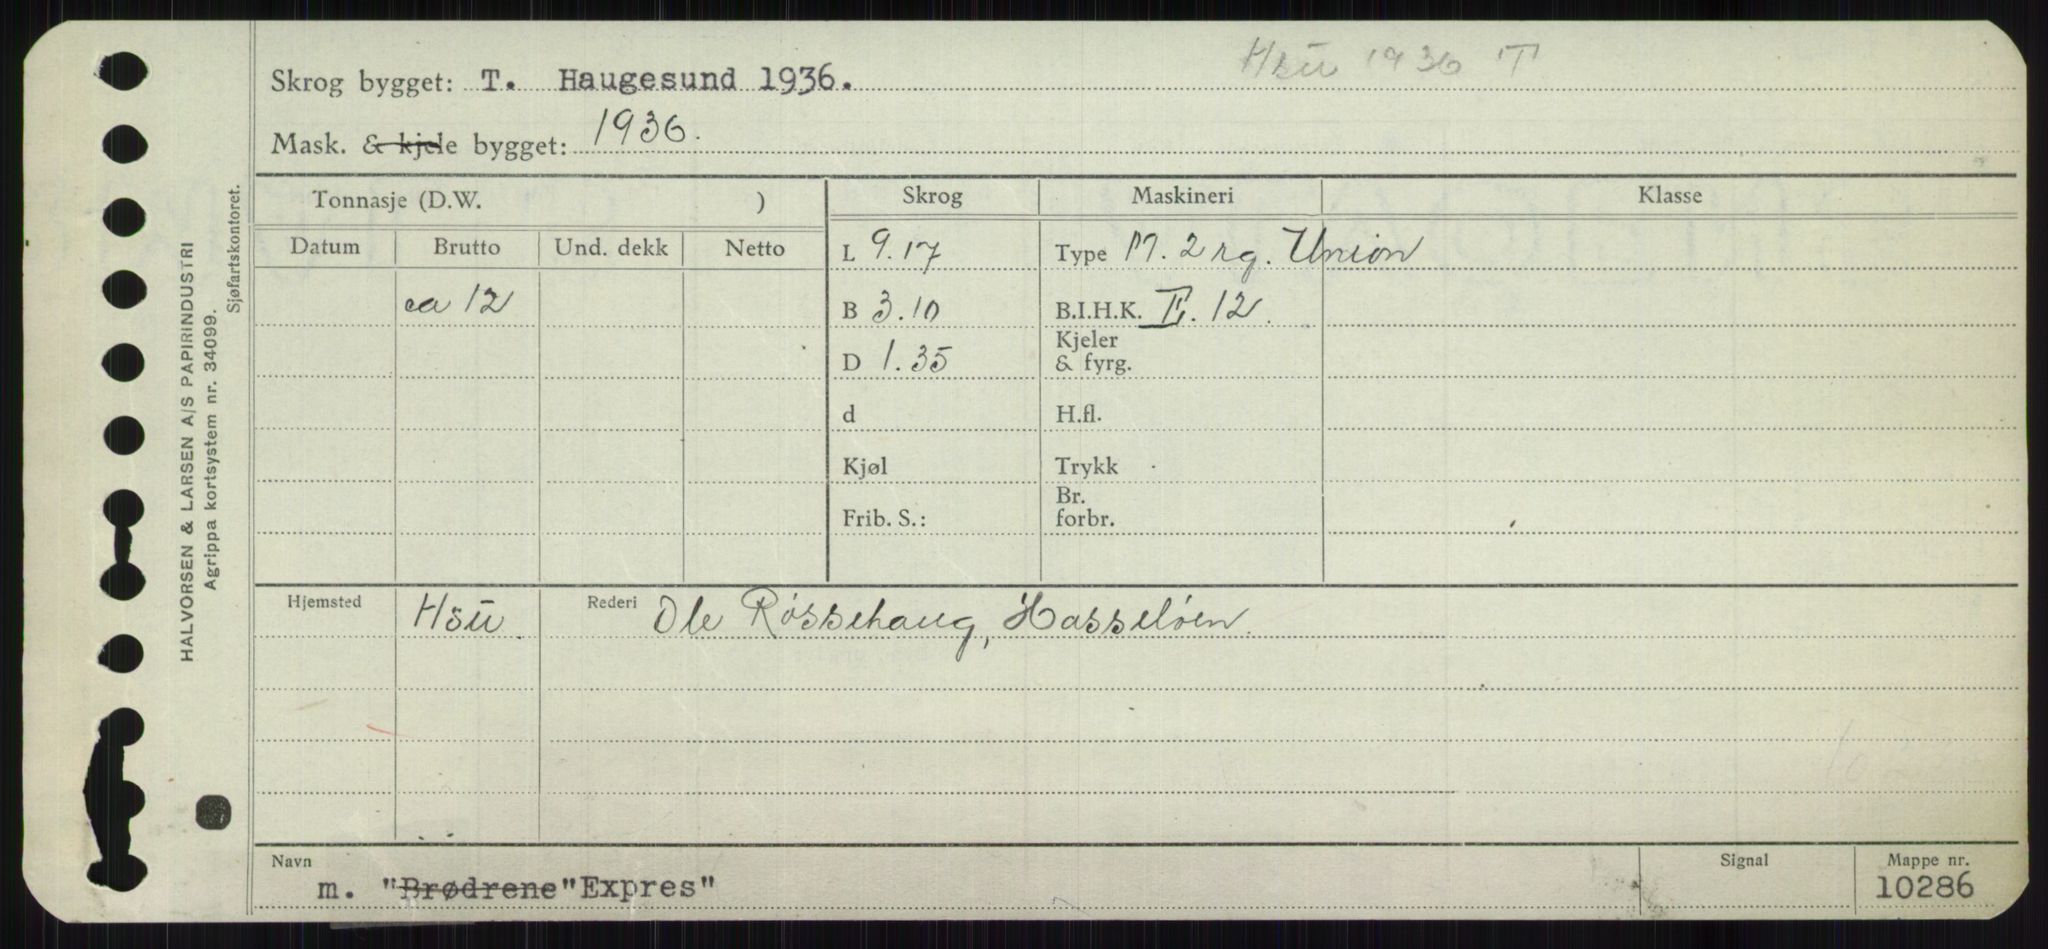 Hsū 1936 T
Skrog bygget: T. Haugesund 1936.
Mask. & kjele bygget: 1936.
Tonnasje (D.W. ) Skrog Maskineri Klasse
Datum Brutto Und. dekk Netto L 9.17 Type M. 2 rg. Union
ca 12 B 3.10 B.I.H.K. I. 12.
D 1.35 Kjeler
& fyrg.
d H.fl.
Kjøl Trykk
Frib. S.: Br.
forbr.
Hjemsted Hsū. Rederi Ole Røssehaug, Hasseløen.
Navn Signal Mappe nr.
m. "Brødrene"Expres" 10286
HALVORSEN & LARSEN A/S PAPIRINDUSTRI
Agrippa kortsystem nr. 34099.
Sjøfartskontoret.